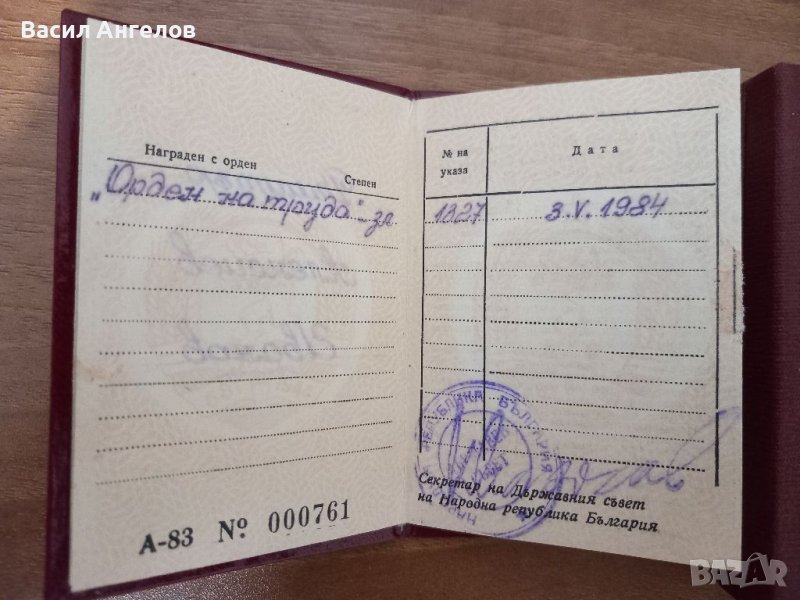 Васил Ангелов
Награден с орден
Степен
„Орден на труда“ - зл
А-83 № 000761
№ на
указа
Дата
1327
3.V.1984
НАРОДНА РЕПУБЛИКА БЪЛГАРИЯ
Секретар на Държавния съвет
на Народна република България
BAZAR